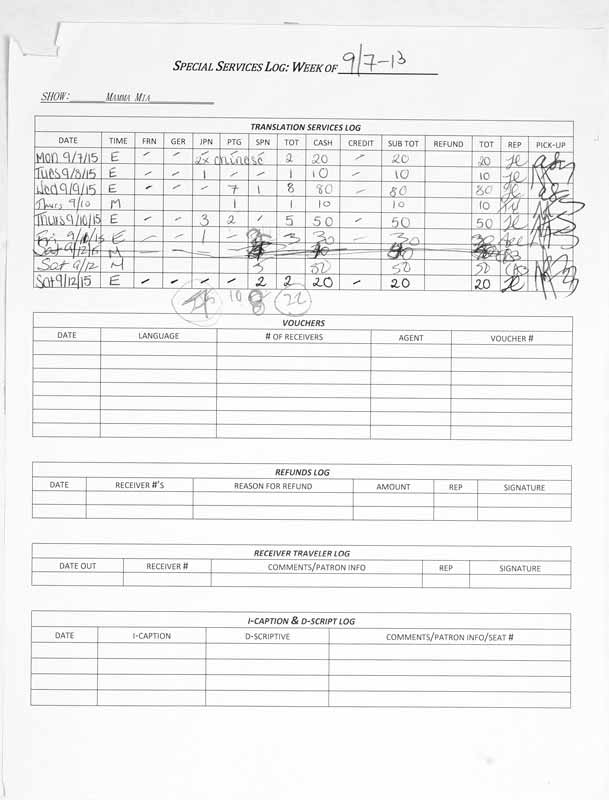 SPECIAL SERVICES LOG: WEEK OF 9/7-13
SHOW: MAMMA MIA
TRANSLATION SERVICES LOG
DATE TIME FRN GER JPN PTG SPN TOT CASH CREDIT SUB TOT REFUND TOT REP PICK-UP
Mon 9/7/15 E - - 2x chinese 2 20 - 20 20 JC
Tues 9/8/15 E - - 1 - - 1 10 - 10 10 JC
Wed 9/9/15 E - - - 7 1 8 80 - 80 80 JC
Thurs 9/10 M 1 1 10 10 10
Thurs 9/10/15 E - - 3 2 - 5 50 - 50 50 JC
Fri 9/11/15 E - - 1 - 3 30 - 30 30
Sat 9/12 M
Sat 9/12 M 5 50 50 50
Sat 9/12/15 E - - - - 2 2 20 - 20 20 JC
10 8 22
VOUCHERS
DATE LANGUAGE # OF RECEIVERS AGENT VOUCHER #
REFUNDS LOG
DATE RECEIVER #'S REASON FOR REFUND AMOUNT REP SIGNATURE
RECEIVER TRAVELER LOG
DATE OUT RECEIVER # COMMENTS/PATRON INFO REP SIGNATURE
I-CAPTION & D-SCRIPT LOG
DATE I-CAPTION D-SCRIPTIVE COMMENTS/PATRON INFO/SEAT #